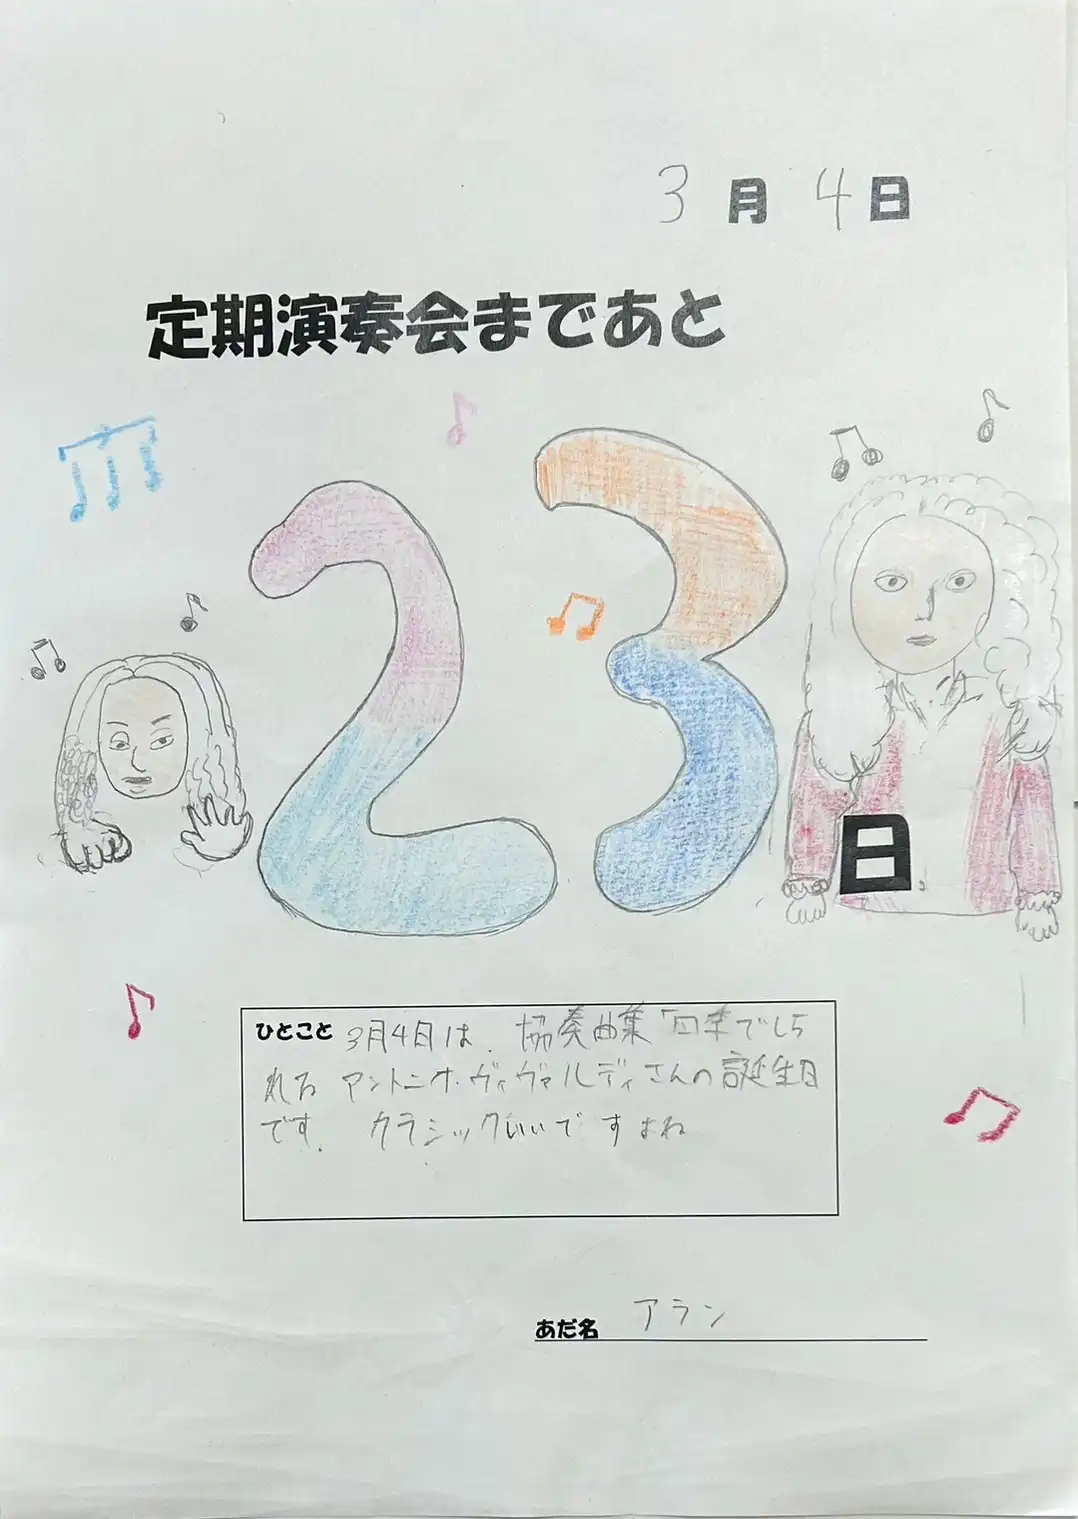 3月4日
定期演奏会まであと
23日
ひとこと 3月4日は、協奏曲集「四季でしら
れる アントニオ・ヴィヴァルディさんの誕生日
です. クラシックいいですよね
あだ名 アラン